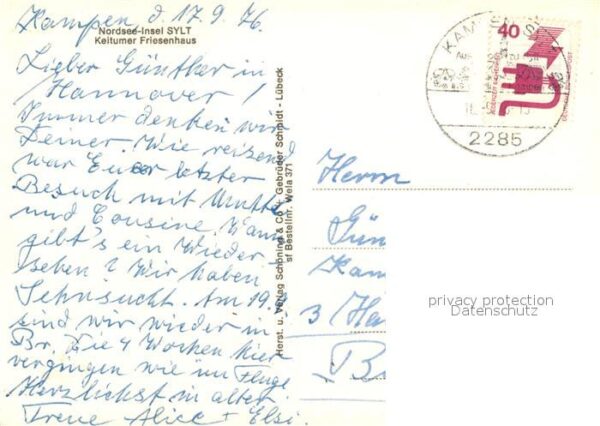 Kampen, d. 17.9.76.
Nordsee-Insel SYLT
Keitumer Friesenhaus
Lieber Günther in
Hannover!
Immer denken wir
Deiner. Wie reizend
war Euer letzter
Besuch mit Mutti
und Cousine. Wann
gibt's ein Wieder
sehen? Wir haben
Sehnsucht. Am 19.9.
sind wir wieder in
Br. Die 4 Wochen hier
vergingen wie im Fluge
Herzlichst in alter
Treue Alice + Elsi.
Herst. u. Verlag Schöning & Co + Gebrüder Schmidt - Lübeck
sf Bestellnr. Wela 371
40
DEUTSCHE BUNDESPOST
KAMPEN SYLT
2285
Herrn
Gün
Kam
3 Ha
privacy protection
Datenschutz